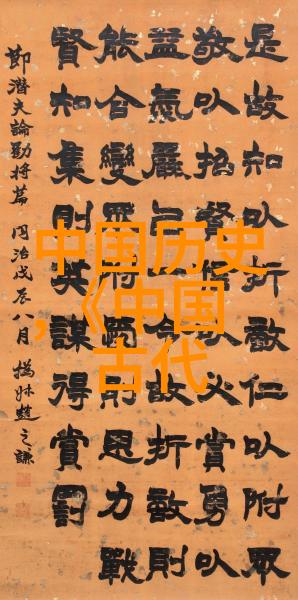 是故知以折敵仁以附眾
敬以招賢信以必賞勇以
益氣嚴以一令故折敵則
能合變附則思力戰
賢知集則英謀得賞罰
節潛夫論勸將篇 同治戊辰八月 撝叔趙之謙
中国历史
,《中国
古代